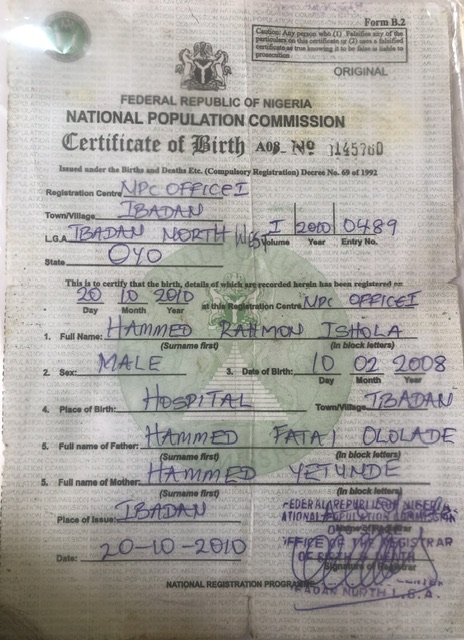 Form B.2
Caution: Any person who (1) Falsifies any of the
particulars on this certificate or (2) uses a falsified
certificate as true knowing it to be false is liable to
prosecution
ORIGINAL
FEDERAL REPUBLIC OF NIGERIA
NATIONAL POPULATION COMMISSION
Certificate of Birth A08- No 145760
Issued under the Births and Deaths Etc. (Compulsory Registration) Decree No. 69 of 1992
Registration Centre NPC OFFICE I
Town/Village IBADAN
L.G.A IBADAN NORTH WEST I 2010 0489
Volume Year Entry No.
State OYO
This is to certify that the birth, details of which are recorded herein has been registered on
20 10 2010 at this Registration Centre NPC OFFICE I
Day Month Year
1. Full Name: HAMMED RAHMON ISHOLA
(Surname first) (In block letters)
2. Sex: MALE 3. Date of Birth: 10 02 2008
Day Month Year
4. Place of Birth: HOSPITAL Town/Village IBADAN
5. Full name of Father: HAMMED FATAI OLOLADE
(Surname first) (In block letters)
5. Full name of Mother: HAMMED YETUNDE
(Surname first) (In block letters)
Place of Issue: IBADAN
FEDERAL REPUBLIC OF NIGERIA
NATIONAL POPULATION COMMISSION
OFFICE OF THE REGISTRAR
OF BIRTH & DEATH
Signature of Registrar
Date: 20-10-2010
IBADAN NORTH L.G.A.
NATIONAL REGISTRATION PROGRAMME